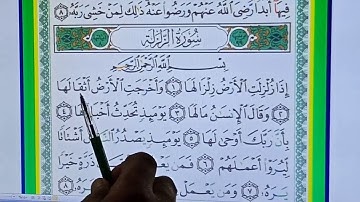 فِيهَا أَبَدًا رَضِيَ اللَّهُ عَنْهُمْ وَرَضُوا عَنْهُ ذَلِكَ لِمَنْ خَشِيَ رَبَّهُ ٨
سُورَةُ الزَّلْزَلَةِ
بِسْمِ اللَّهِ الرَّحْمَنِ الرَّحِيمِ
إِذَا زُلْزِلَتِ الْأَرْضُ زِلْزَالَهَا ١ وَأَخْرَجَتِ الْأَرْضُ أَثْقَالَهَا
٢ وَقَالَ الْإِنسَنُ مَا لَهَا ٣ يَوْمَئِذٍ تُحَدِّثُ أَخْبَارَهَا ٤
بِأَنَّ رَبَّكَ أَوْحَى لَهَا ٥ يَوْمَئِذٍ يَصْدُرُ النَّاسُ أَشْتَاتًا
لِيُرَوْا أَعْمَلَهُمْ ٦ فَمَن يَعْمَلْ ذَرَّةٍ خَيْرًا
يَرَهُ ٧ وَمَن يَعْمَلْ ٨